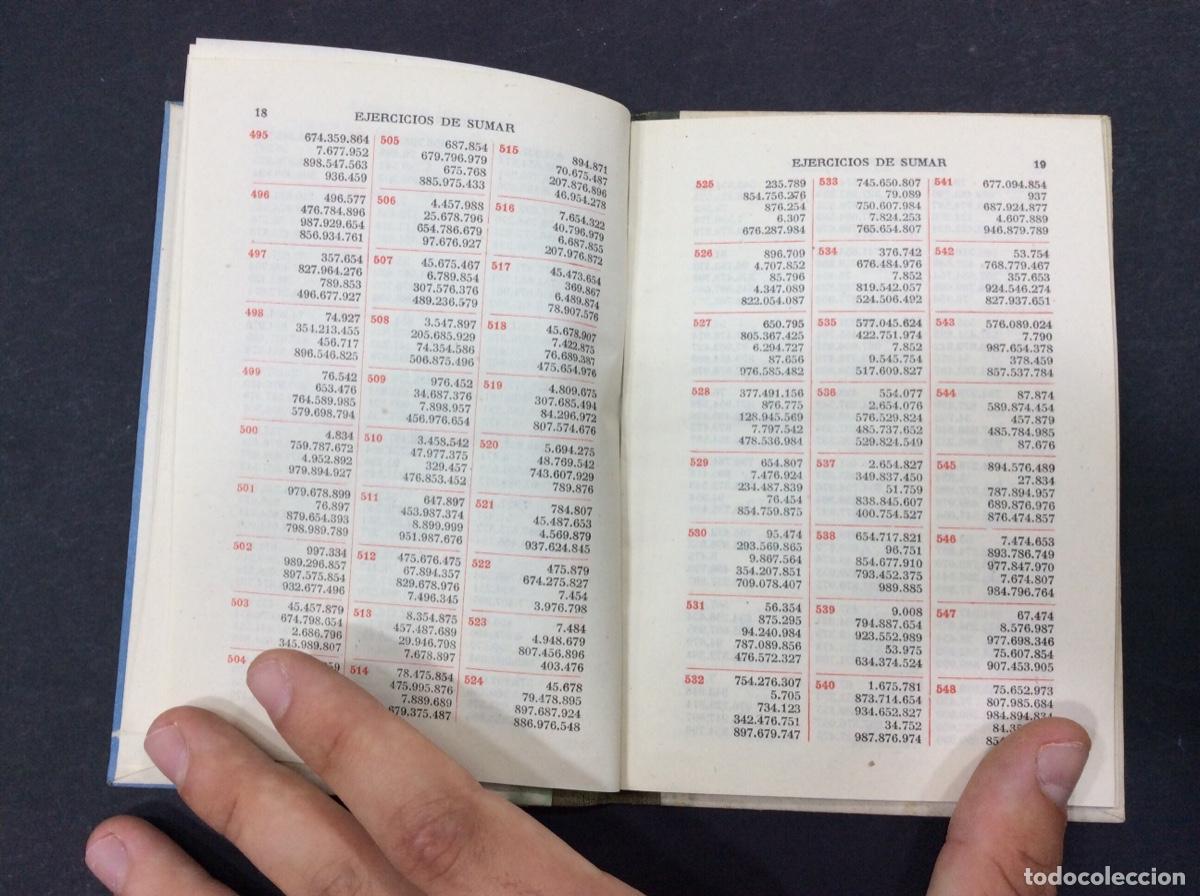 18 EJERCICIOS DE SUMAR
495 674.359.864
7.677.952
898.547.563
936.459
496 496.577
476.784.896
987.929.654
856.934.761
497 357.654
827.964.276
789.853
496.677.927
498 74.927
354.213.455
456.717
896.546.825
499 76.542
653.476
764.589.985
579.698.794
500 4.834
759.787.672
4.952.892
979.894.927
501 979.678.899
76.897
879.654.393
798.989.789
502 997.334
989.296.857
897.575.854
932.677.496
503 45.457.879
674.798.654
2.686.796
345.989.807
504
505 687.854
679.796.979
675.768
385.975.433
506 4.457.988
25.678.796
654.786.679
97.676.927
507 45.675.467
6.789.854
307.576.376
489.236.579
508 3.547.897
205.685.929
74.354.586
506.875.496
509 976.452
34.687.376
7.898.957
456.976.654
510 3.458.542
47.977.375
329.457
476.853.452
511 647.897
453.987.374
8.899.999
951.987.676
512 475.676.475
67.894.357
829.678.976
7.496.345
513 8.354.875
457.487.689
29.946.798
7.678.897
514 78.475.854
475.995.876
7.889.689
679.375.487
515 894.871
70.675.487
207.876.896
46.954.278
516 7.654.322
40.796.979
6.687.855
207.976.872
517 45.473.654
369.867
6.489.874
78.907.576
518 45.678.907
7.422.875
76.689.387
475.654.976
519 4.809.675
307.685.494
84.296.972
807.574.676
520 5.694.275
48.769.542
743.607.929
789.876
521 784.807
45.487.653
4.569.879
937.624.845
522 475.879
674.275.827
7.454
3.976.798
523 7.484
4.948.679
807.456.896
403.476
524 45.678
79.478.895
897.687.924
886.976.548
EJERCICIOS DE SUMAR 19
525 235.789
854.756.276
876.254
6.307
676.287.984
526 896.709
4.707.852
85.796
4.347.089
822.054.087
527 650.795
805.367.425
6.294.727
87.656
976.585.482
528 377.491.156
876.775
128.945.569
7.797.542
478.536.984
529 654.807
7.476.924
234.487.839
76.454
854.759.875
530 95.474
293.569.865
9.867.564
354.207.851
709.078.407
531 56.354
875.295
94.240.984
787.089.856
476.572.327
532 754.276.307
5.705
734.123
342.476.751
897.679.747
533 745.650.807
79.089
750.607.984
7.824.253
765.654.807
534 376.742
676.484.976
7.852
819.542.057
524.506.492
535 577.045.624
422.751.974
7.852
9.545.754
517.609.827
536 554.077
2.654.076
576.529.824
485.737.652
529.824.549
537 2.654.827
349.837.450
51.759
838.845.607
400.754.527
538 654.717.821
96.751
854.677.910
793.452.375
989.885
539 9.008
794.887.654
923.552.989
53.975
634.374.524
540 1.675.781
873.714.654
934.652.827
34.752
987.876.974
541 677.094.854
937
687.924.877
4.607.889
946.879.789
542 53.754
768.779.467
357.653
924.546.274
827.937.651
543 576.089.024
7.790
987.654.378
378.459
857.537.784
544 87.874
589.874.454
457.879
485.784.985
87.676
545 894.576.489
27.834
787.894.957
689.876.976
876.474.857
546 7.474.653
893.786.749
977.847.970
7.674.807
984.796.764
547 67.474
8.576.987
977.698.346
75.607.854
907.453.905
548 75.652.973
807.985.684
984.894.834
todocoleccion